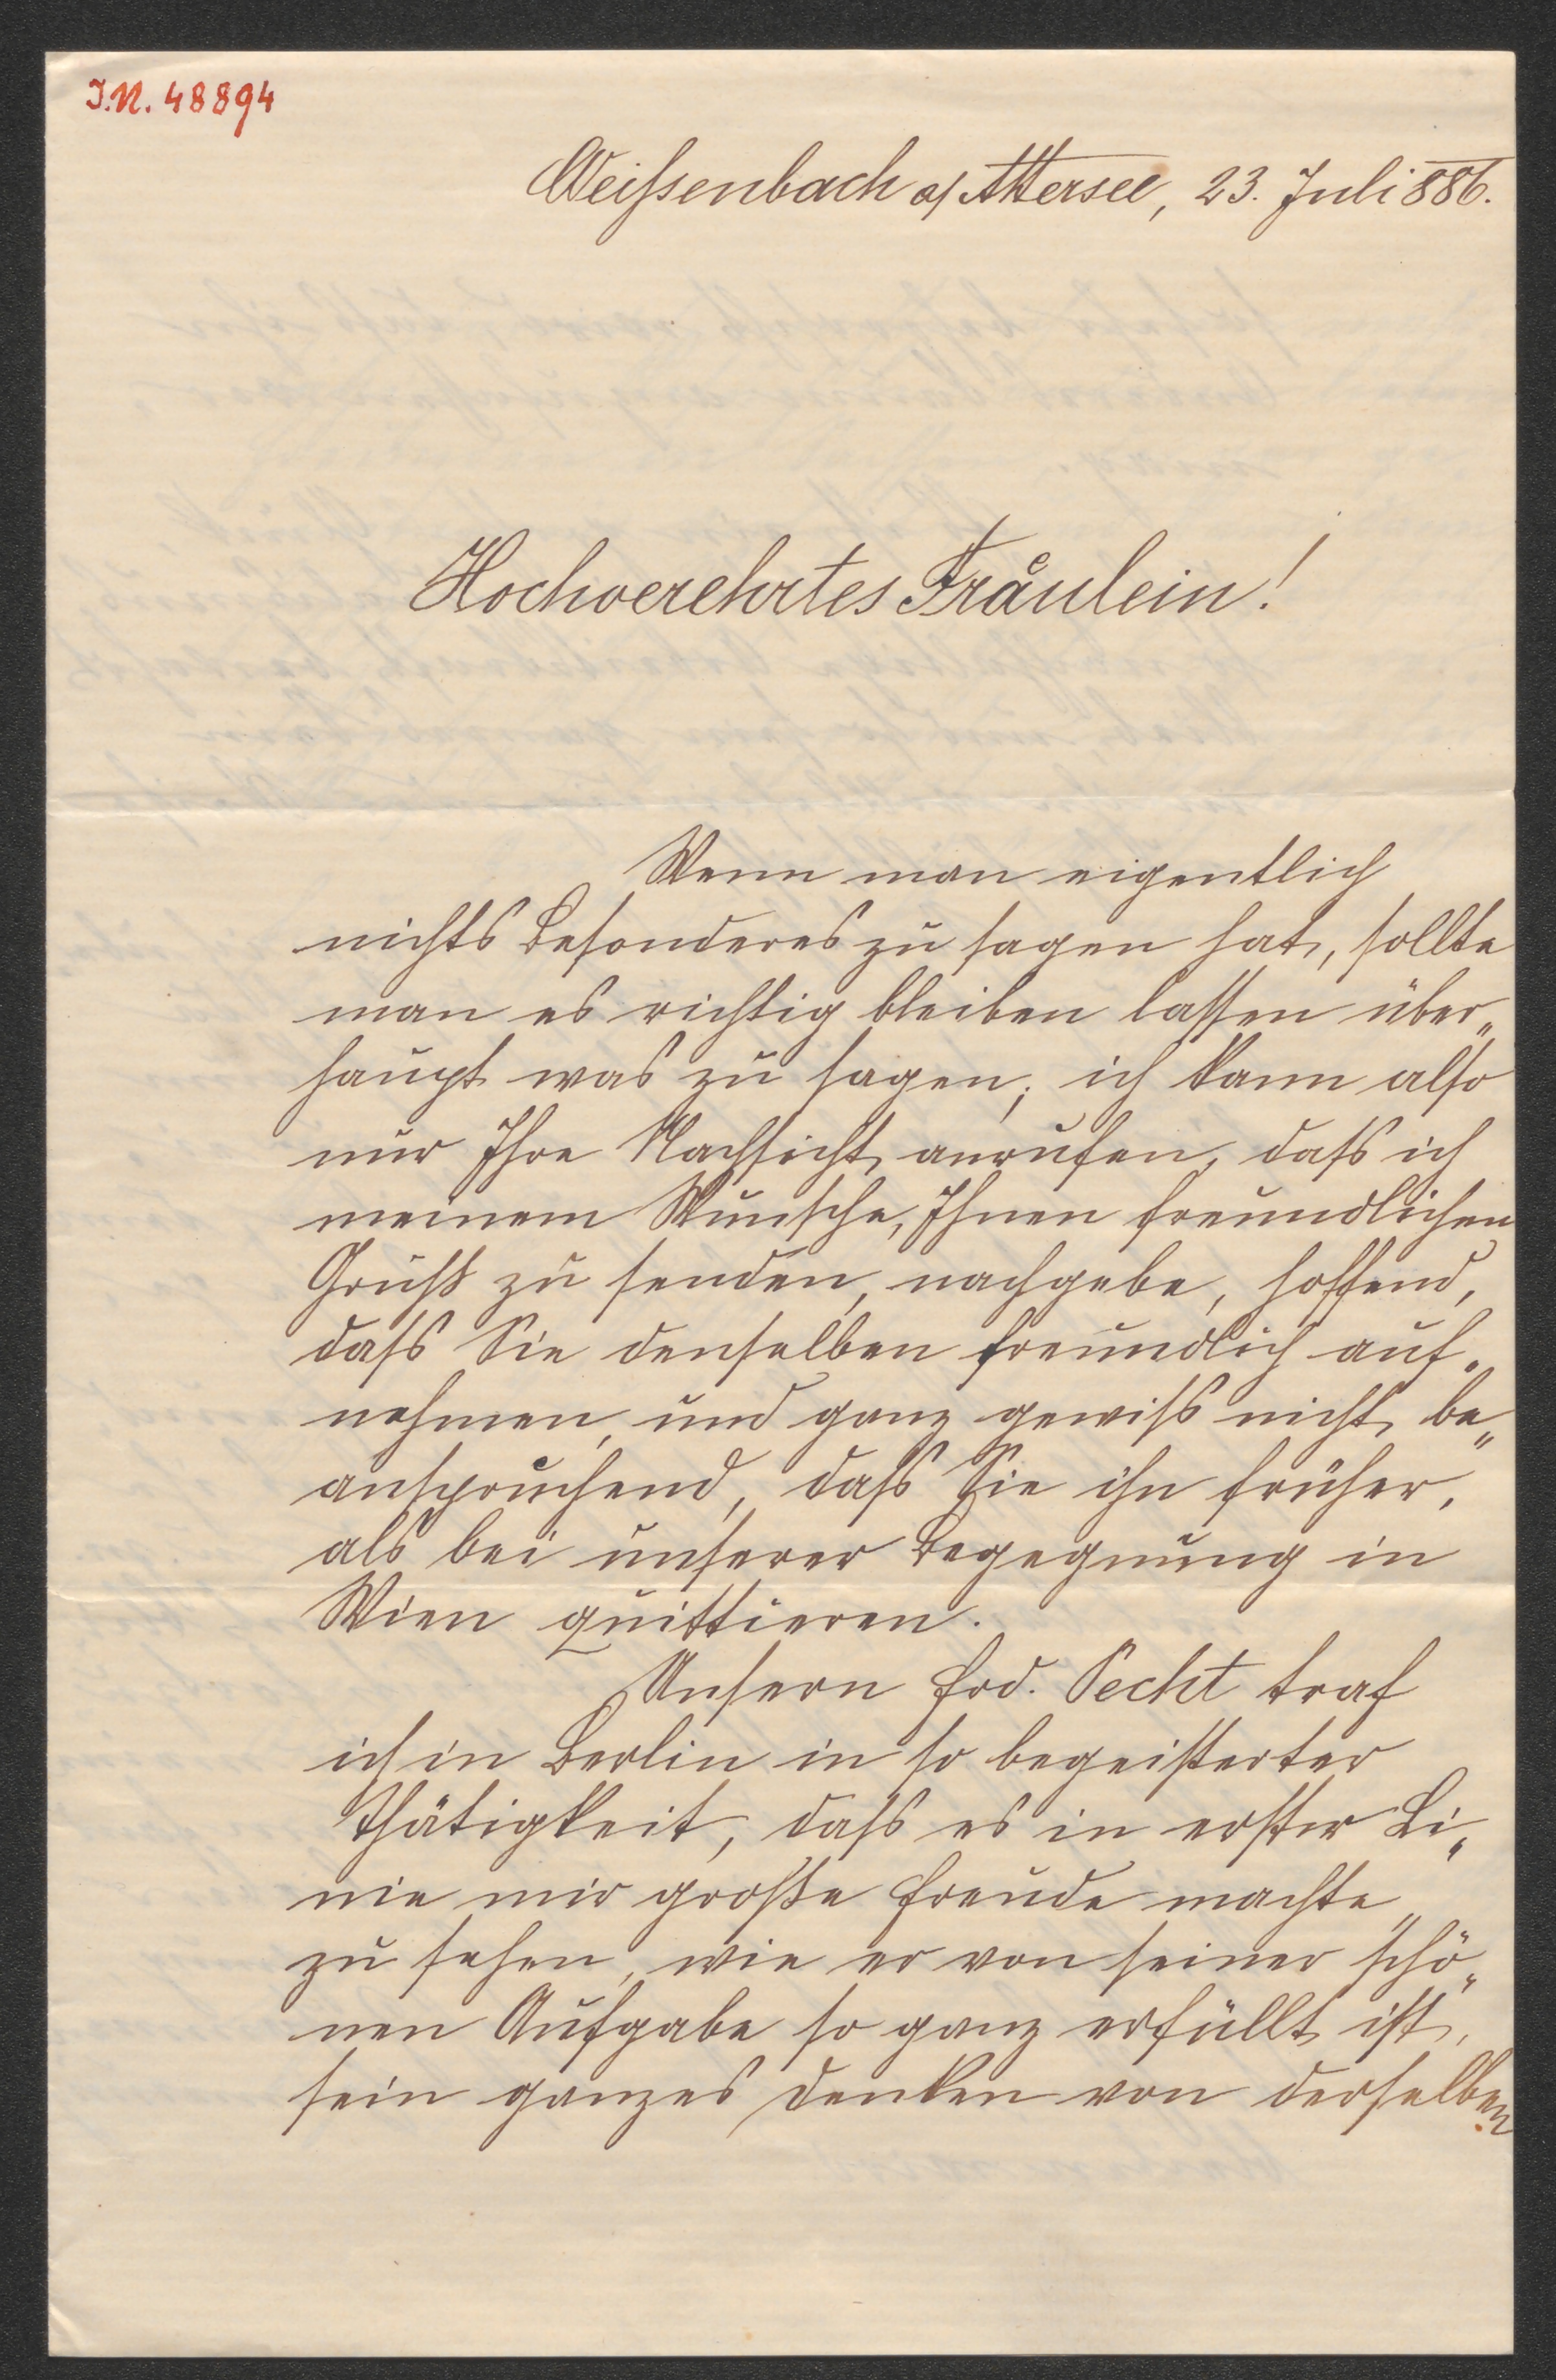 J.N. 48894
Weißenbach a/Attersee, 23. Juli 886.
Hochverehrtes Fräulein!
Wenn man eigentlich
nichts Besonderes zu sagen hat, sollte
man es richtig bleiben lassen über„
haupt was zu sagen; ich kann also
nur Ihre Nachsicht anrufen, dass ich
meinem Wunsche, Ihnen freundlichen
Gruß zu senden, nachgebe, hoffend,
dass Sie denselben freundlich auf„
nehmen, und ganz gewiss nicht be„
anspruchend, dass Sie ihn früher,
als bei unserer Begegnung in
Wien quittieren.
Unsern Frd. Pecht traf
ich in Berlin in so begeisterter
Thätigkeit, dass es in erster Li„
nie mir große Freude machte
zu sehen, wie er von seiner schö„
nen Aufgabe so ganz erfüllt ist,
sein ganzes Denken von derselben